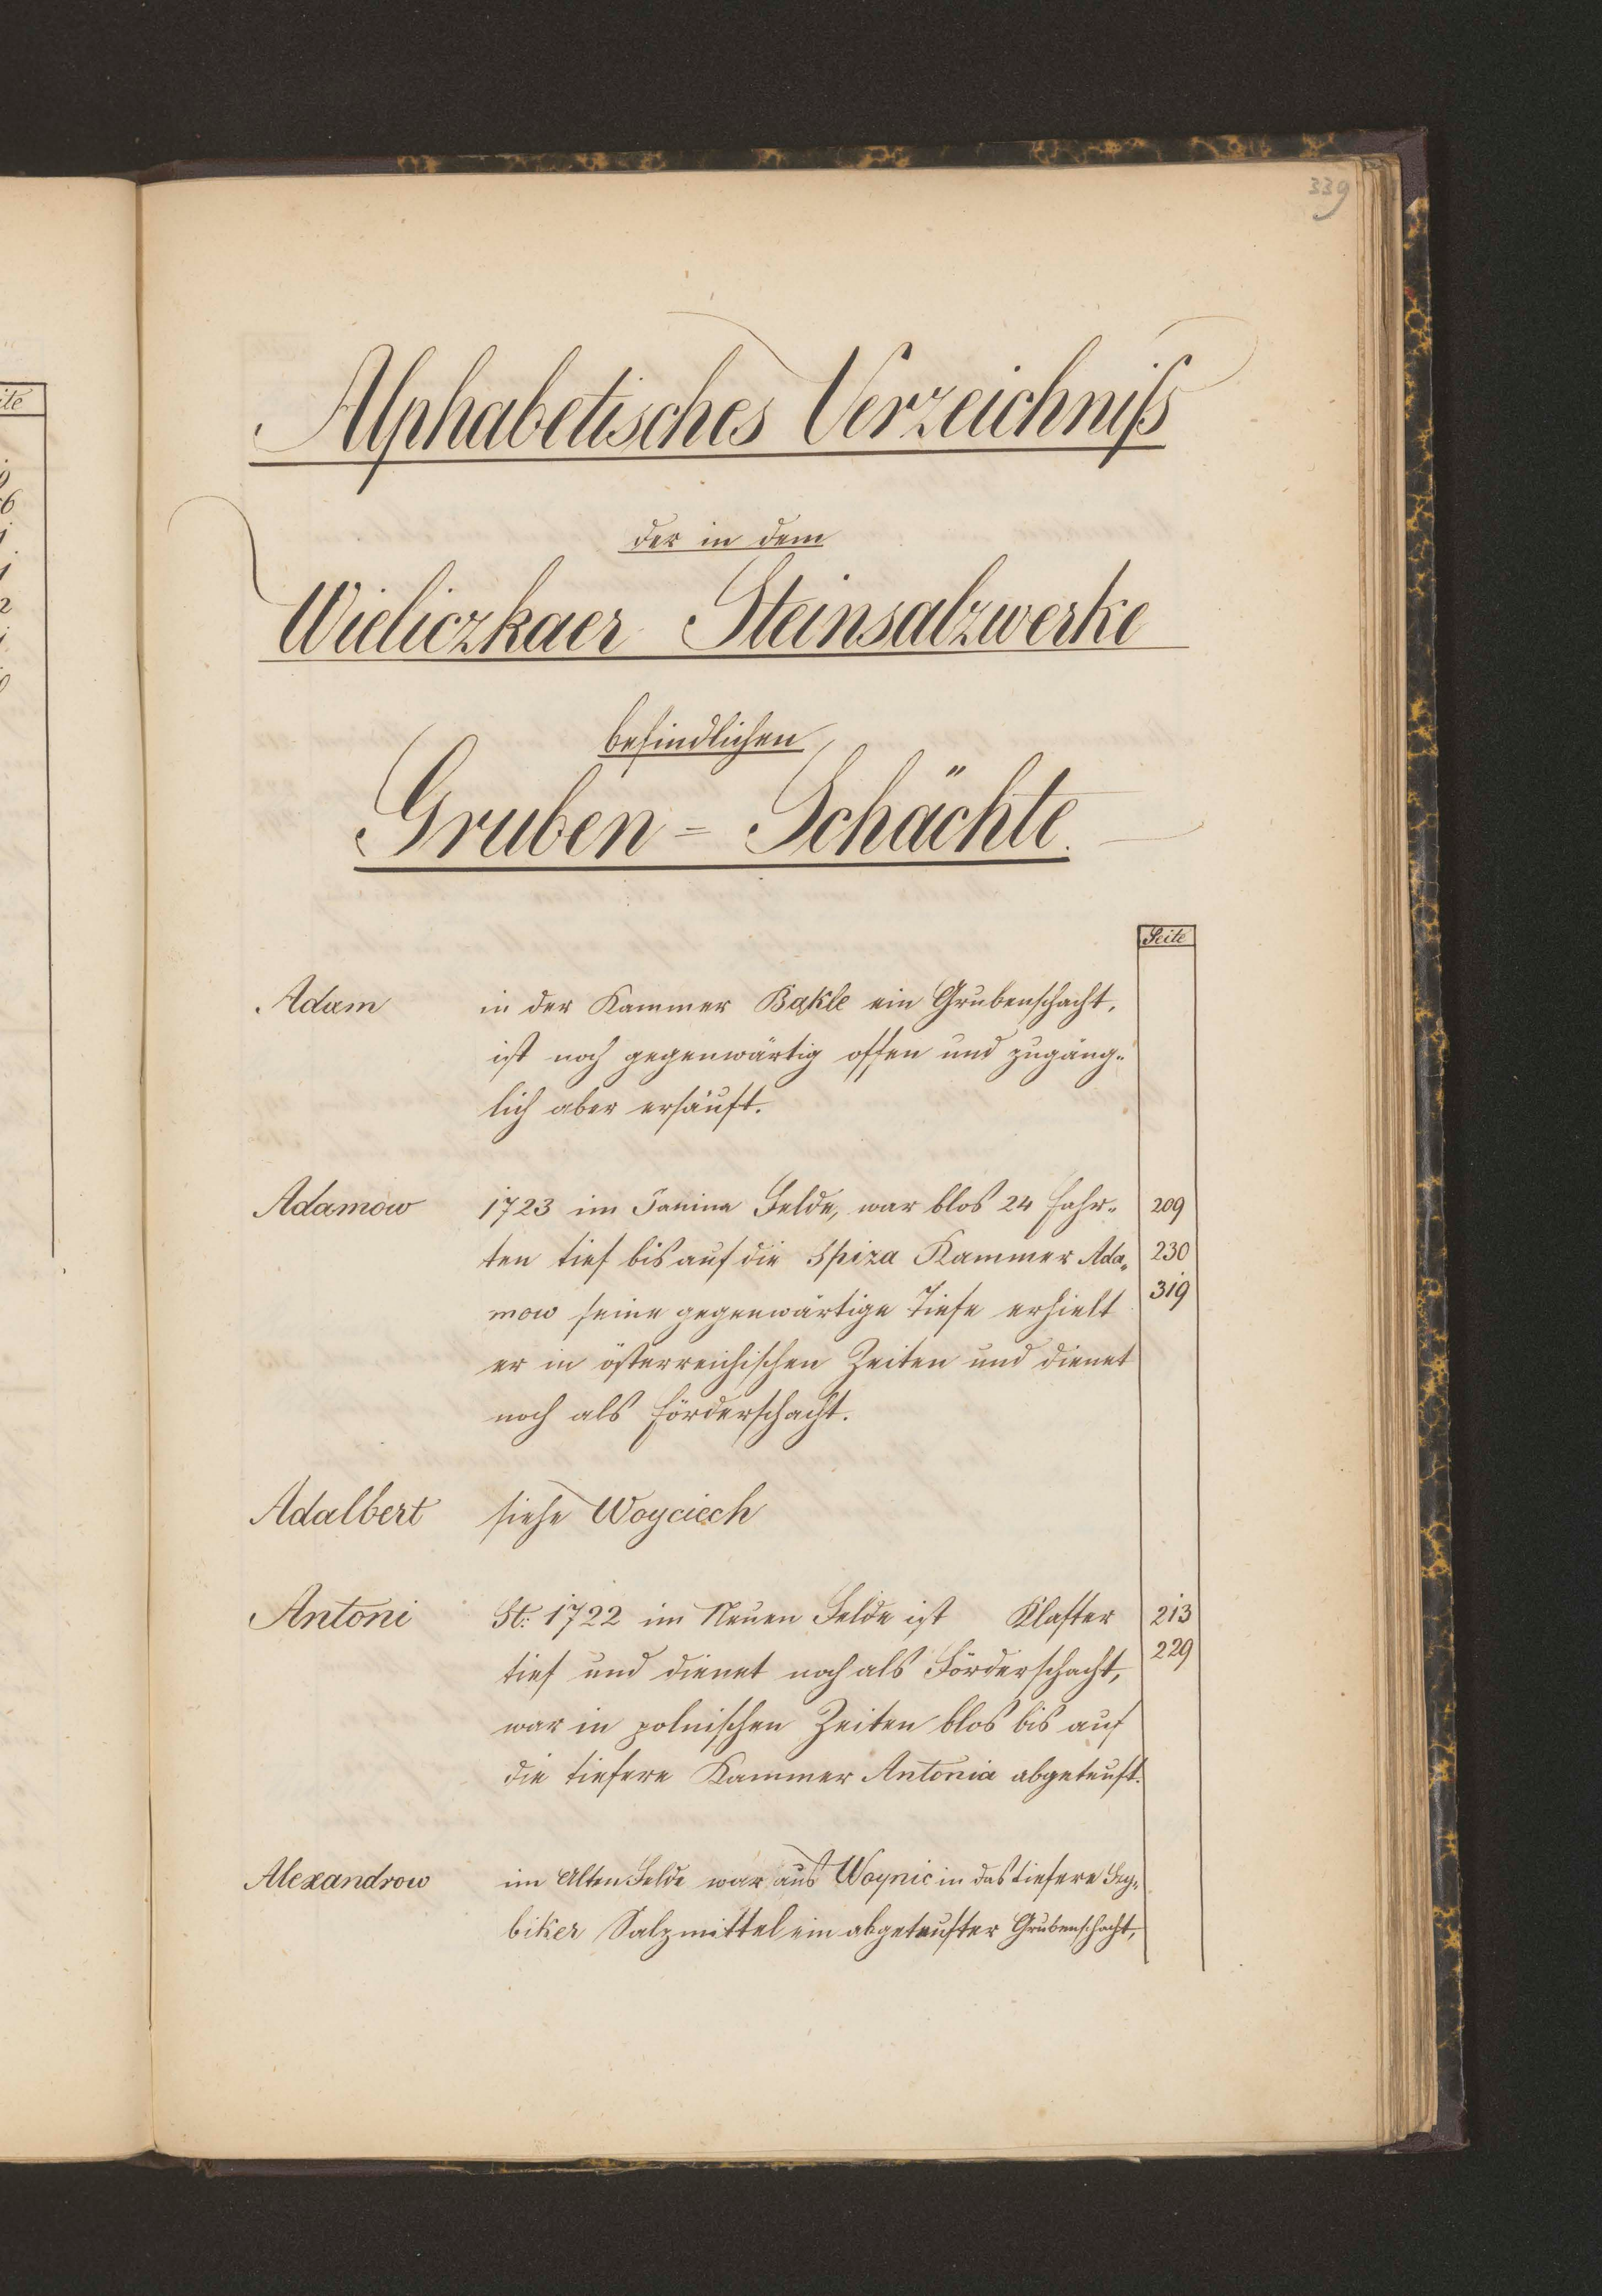 339
Alphabetisches Verzeichniſs
der in dem
Wieliczkaer Steinsalzwerke
befindlichen
Gruben = Schächte.
Seite
Adam in der Kammer Bąkle ein Grubenschacht,
ist noch gegenwärtig offen und zugäng„
lich aber ersäuft.
Adamow 1723 im Janina Felde, war blos 24 Fahr„ 209
ten tief bis auf die Spiza Kammer Ada„ 230
mow seine gegenwärtige Tiefe erhielt 319
er in österreichischen Zeiten und dienet
noch als Förderschacht.
Adalbert siehe Woyciech
Antoni St: 1722 im Neuen Felde ist Klafter 213
tief und dienet noch als Förderschacht, 229
war in polnischen Zeiten blos bis auf
die tiefere Kammer Antonia abgeteuft.
Alexandrow im Alten Felde war aus Woynic in das tiefere
biker Salzmittel ein abgeteufter Grubenschacht,